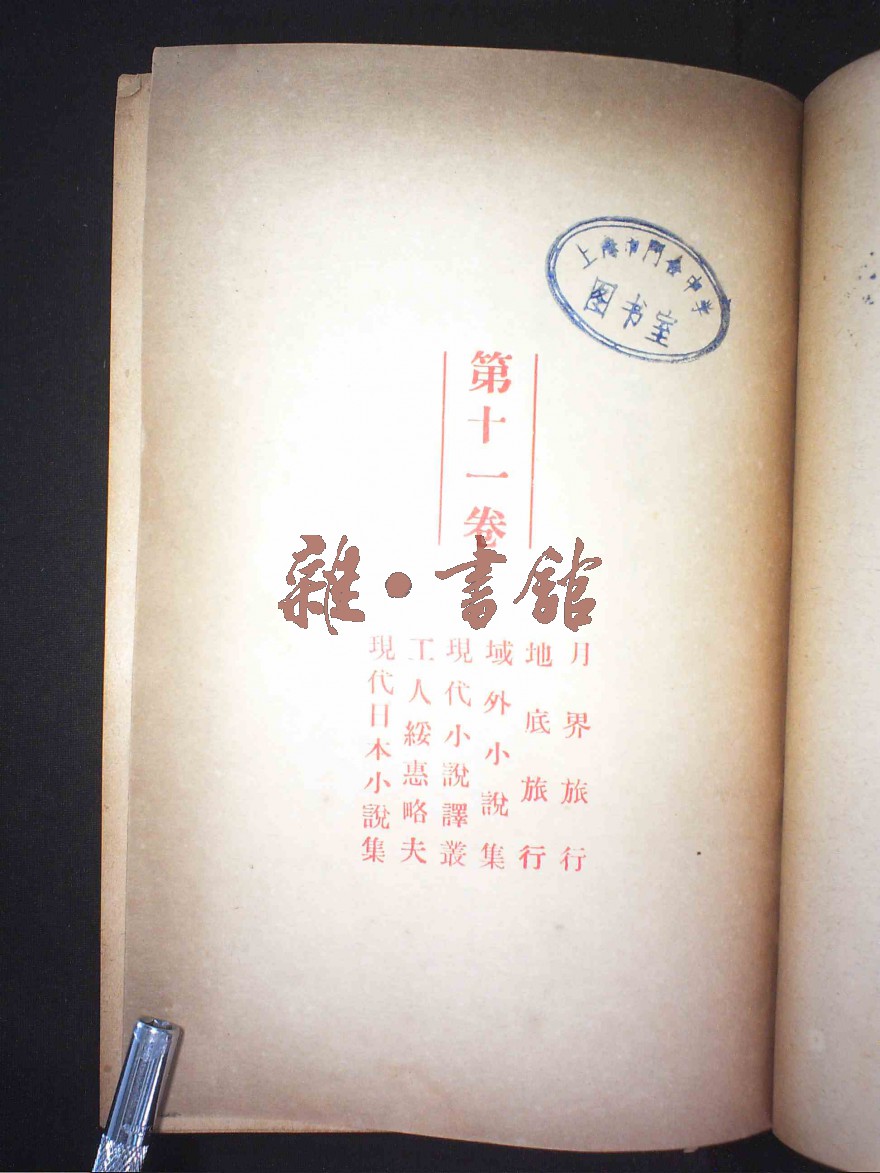 上海市閘北中学
图书室
第十一卷
雜·書館
月界旅行
地底旅行
域外小說集
現代小說譯叢
工人綏惠略夫
現代日本小說集